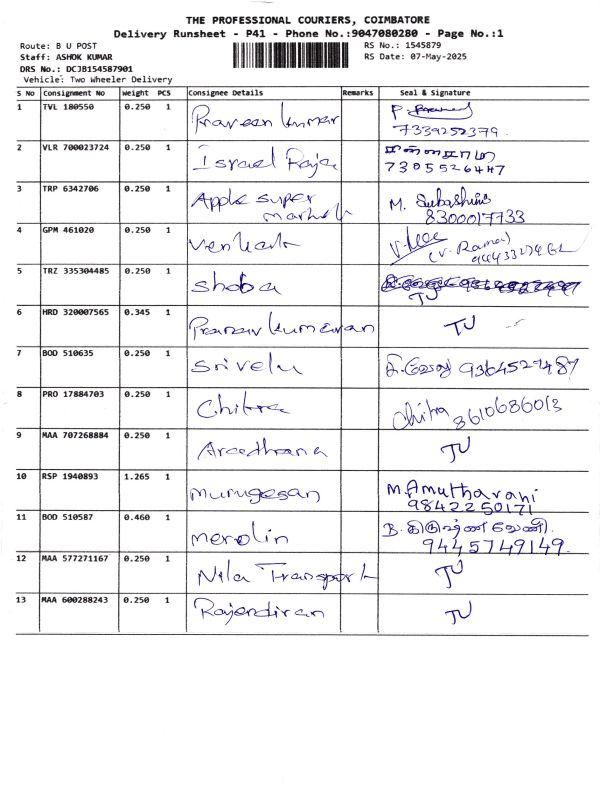 THE PROFESSIONAL COURIERS, COIMBATORE
Delivery Runsheet - P41 - Phone No.:9047080280 - Page No.:1
Route: B U POST
RS No.: 1545879
Staff: ASHOK KUMAR
RS Date: 07-May-2025
DRS No.: DCJB154587901
Vehicle: Two Wheeler Delivery
S No Consignment No Weight PCS Consignee Details Remarks Seal & Signature
1 TVL 180550 0.250 1 Praveen kumar P.
7339252379
2 VLR 700023724 0.250 1 Israel Raja
7305526447
3 TRP 6342706 0.250 1 Apple super M. Subashini
market 8300017733
4 GPM 461020 0.250 1 Venkat
(V. Raman)
5 TRZ 335304485 0.250 1 Shoba
TU
6 HRD 320007565 0.345 1 Pranav kumaran TU
7 BOD 510635 0.250 1 Srivelu 9364527487
8 PRO 17884703 0.250 1 Chitra Chitra 8610686013
9 MAA 707268884 0.250 1 Aradhana TU
10 RSP 1940893 1.265 1 Murugesan M.Amutharani
9842250171
11 BOD 510587 0.460 1 merolin B. கிருஷ்ணவேணி.
9445749149
12 MAA 577271167 0.250 1 Nila Transport TU
13 MAA 600288243 0.250 1 Rajendiran TU